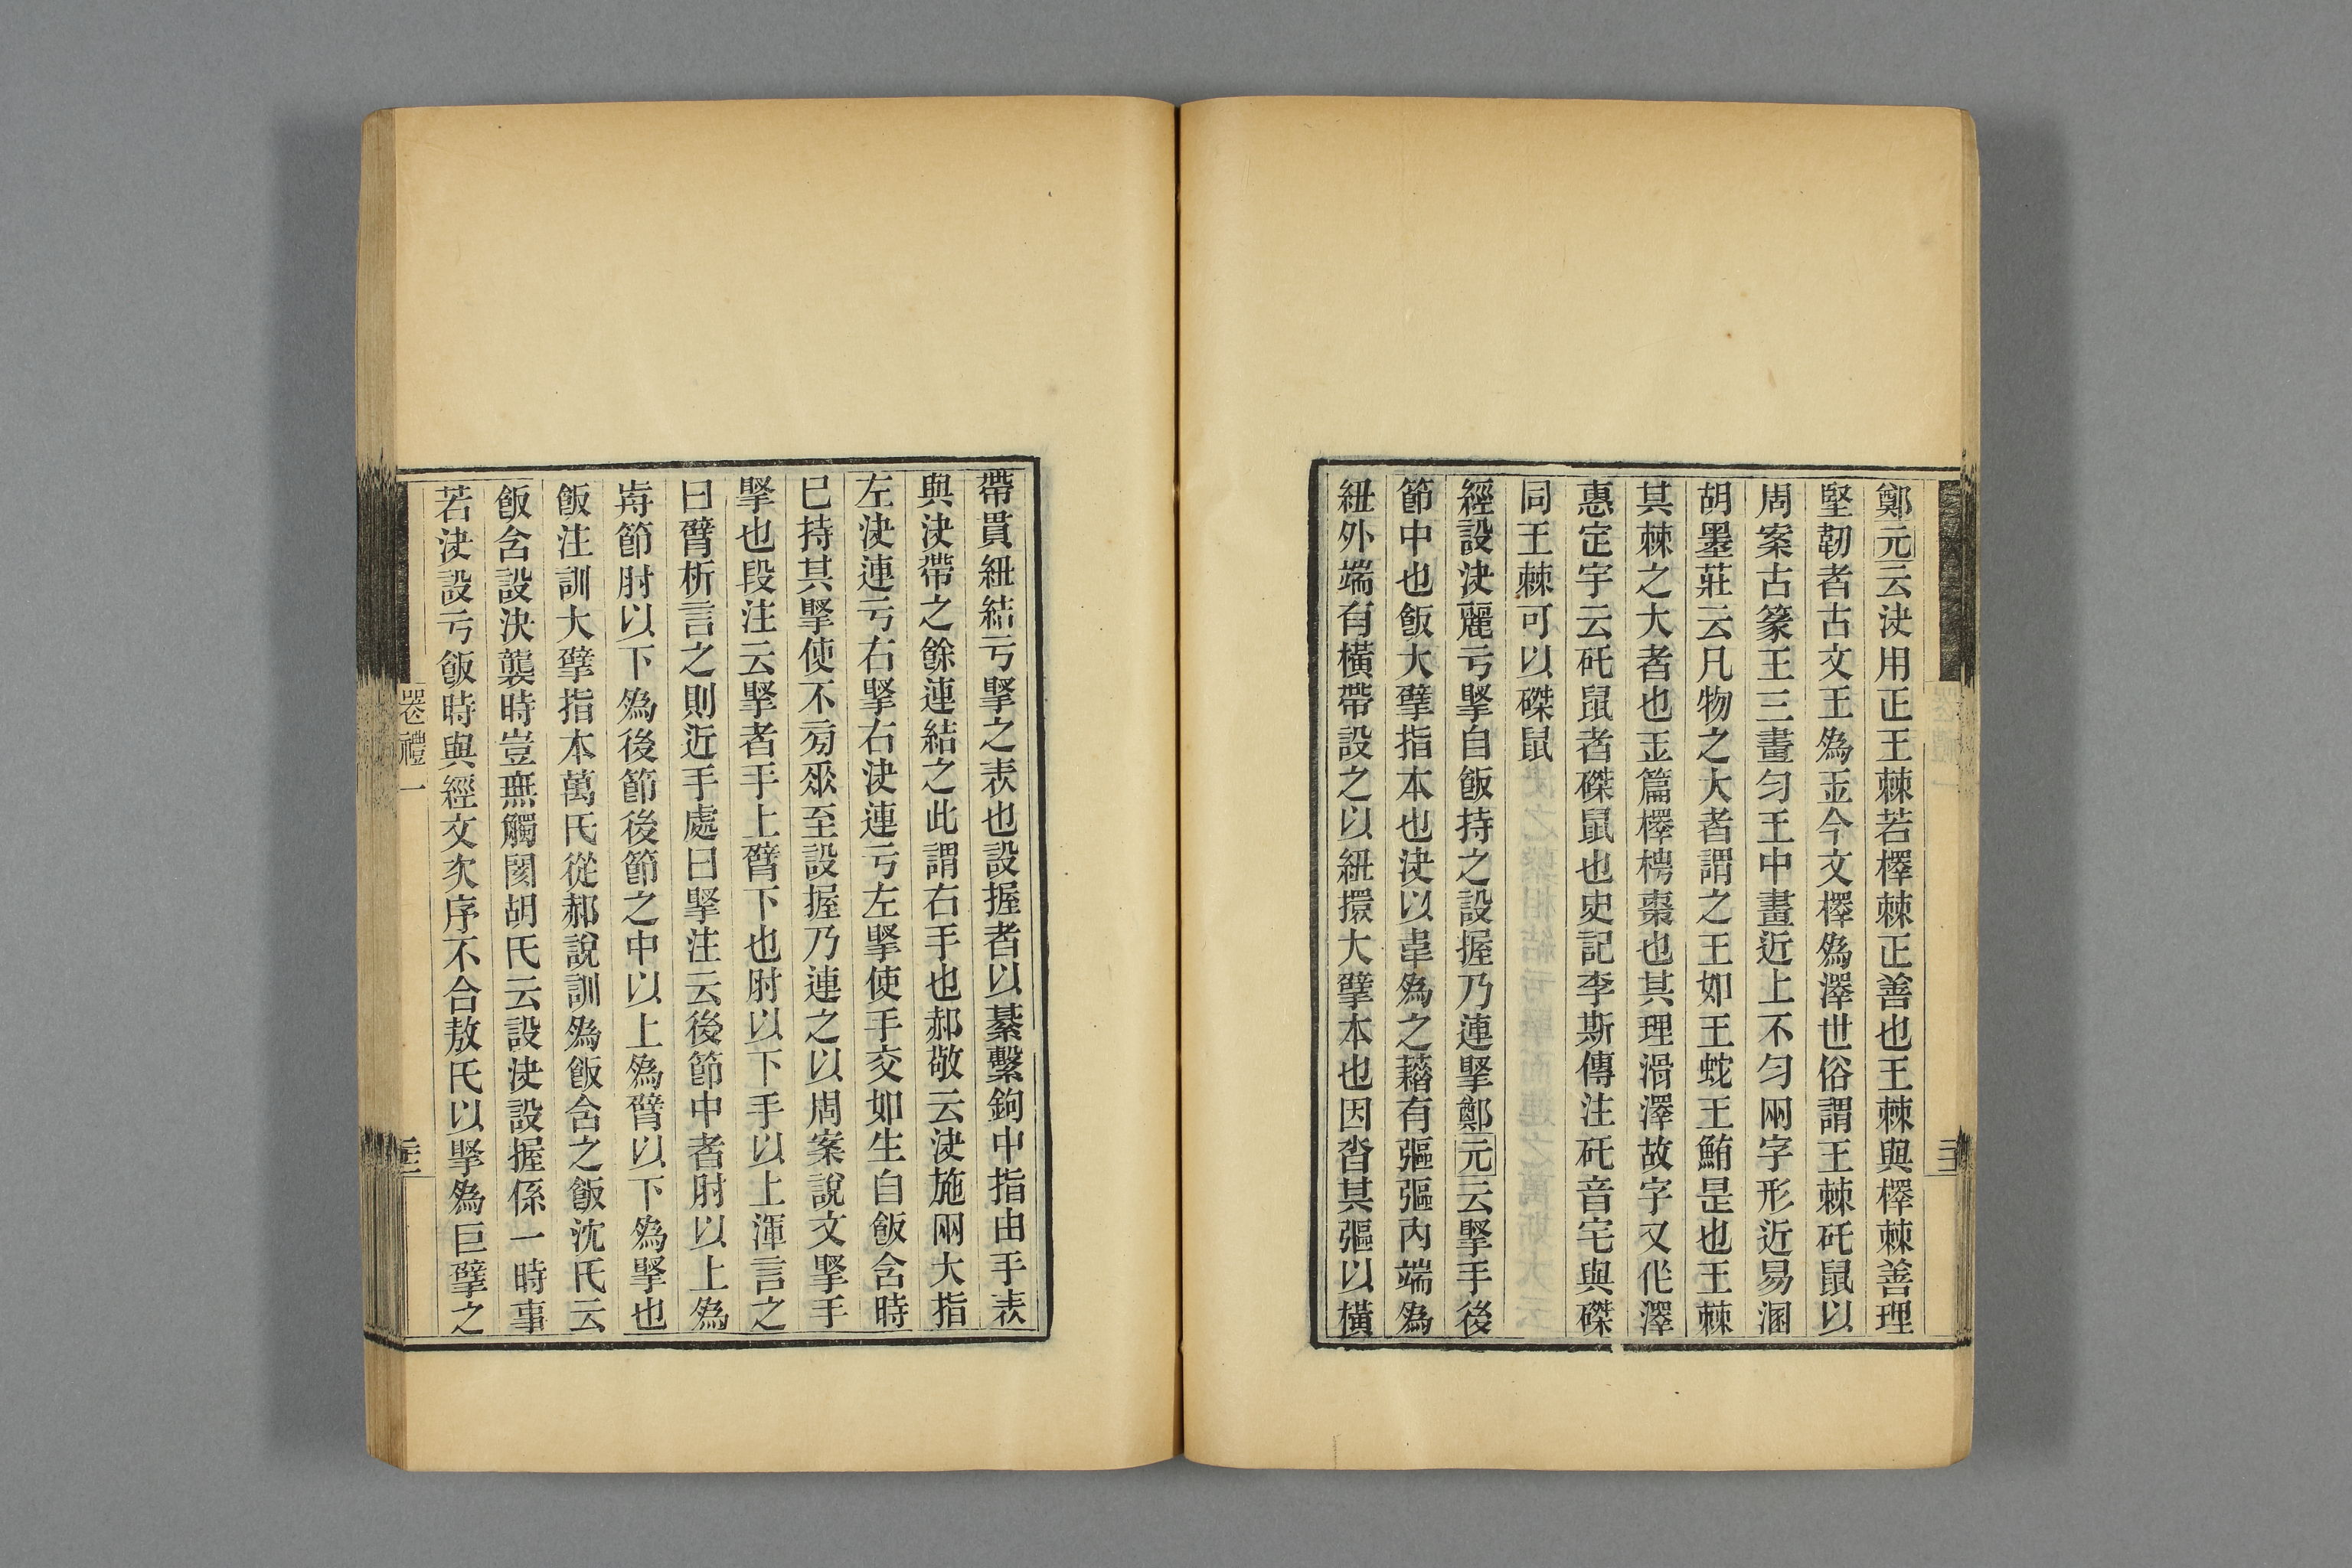 鄭元云決用正王棘若檡棘正善也王棘與檡棘善理
堅韌者古文王爲玉今文檡爲澤世俗謂王棘矺鼠以
周案古篆王三畫勻王中畫近上不勻兩字形近易溷
胡墨莊云凡物之大者謂之王如王蛇王鮪是也王棘
其棘之大者也玉篇檡梬棗也其理滑澤故字又作澤
惠定宇云矺鼠者磔鼠也史記李斯傳注矺音宅與磔
同王棘可以磔鼠
經設決麗亏掔自飯持之設握乃連掔鄭元云掔手後
節中也飯大擘指本也決以韋爲之藉有彄彄內端爲
紐外端有橫帶設之以紐擐大擘本也因沓其彄以橫
帶貫紐結亏掔之表也設握者以綦繫鉤中指由手表
與決帶之餘連結之此謂右手也郝敬云決施兩大指
左決連亏右掔右決連亏左掔使手交如生自飯含時
已持其掔使不㫄㐺至設握乃連之以周案說文掔手
掔也段注云掔者手上臂下也肘以下手以上渾言之
曰臂析言之則近手處曰掔注云後節中者肘以上爲
歬節肘以下爲後節後節之中以上爲臂以下爲掔也
飯注訓大擘指本萬氏從郝說訓爲飯含之飯沈氏云
飯含設決襲時豈無觸閡胡氏云設決設握係一時事
若決設亏飯時與經文次序不合敖氏以掔爲巨擘之
卷禮一